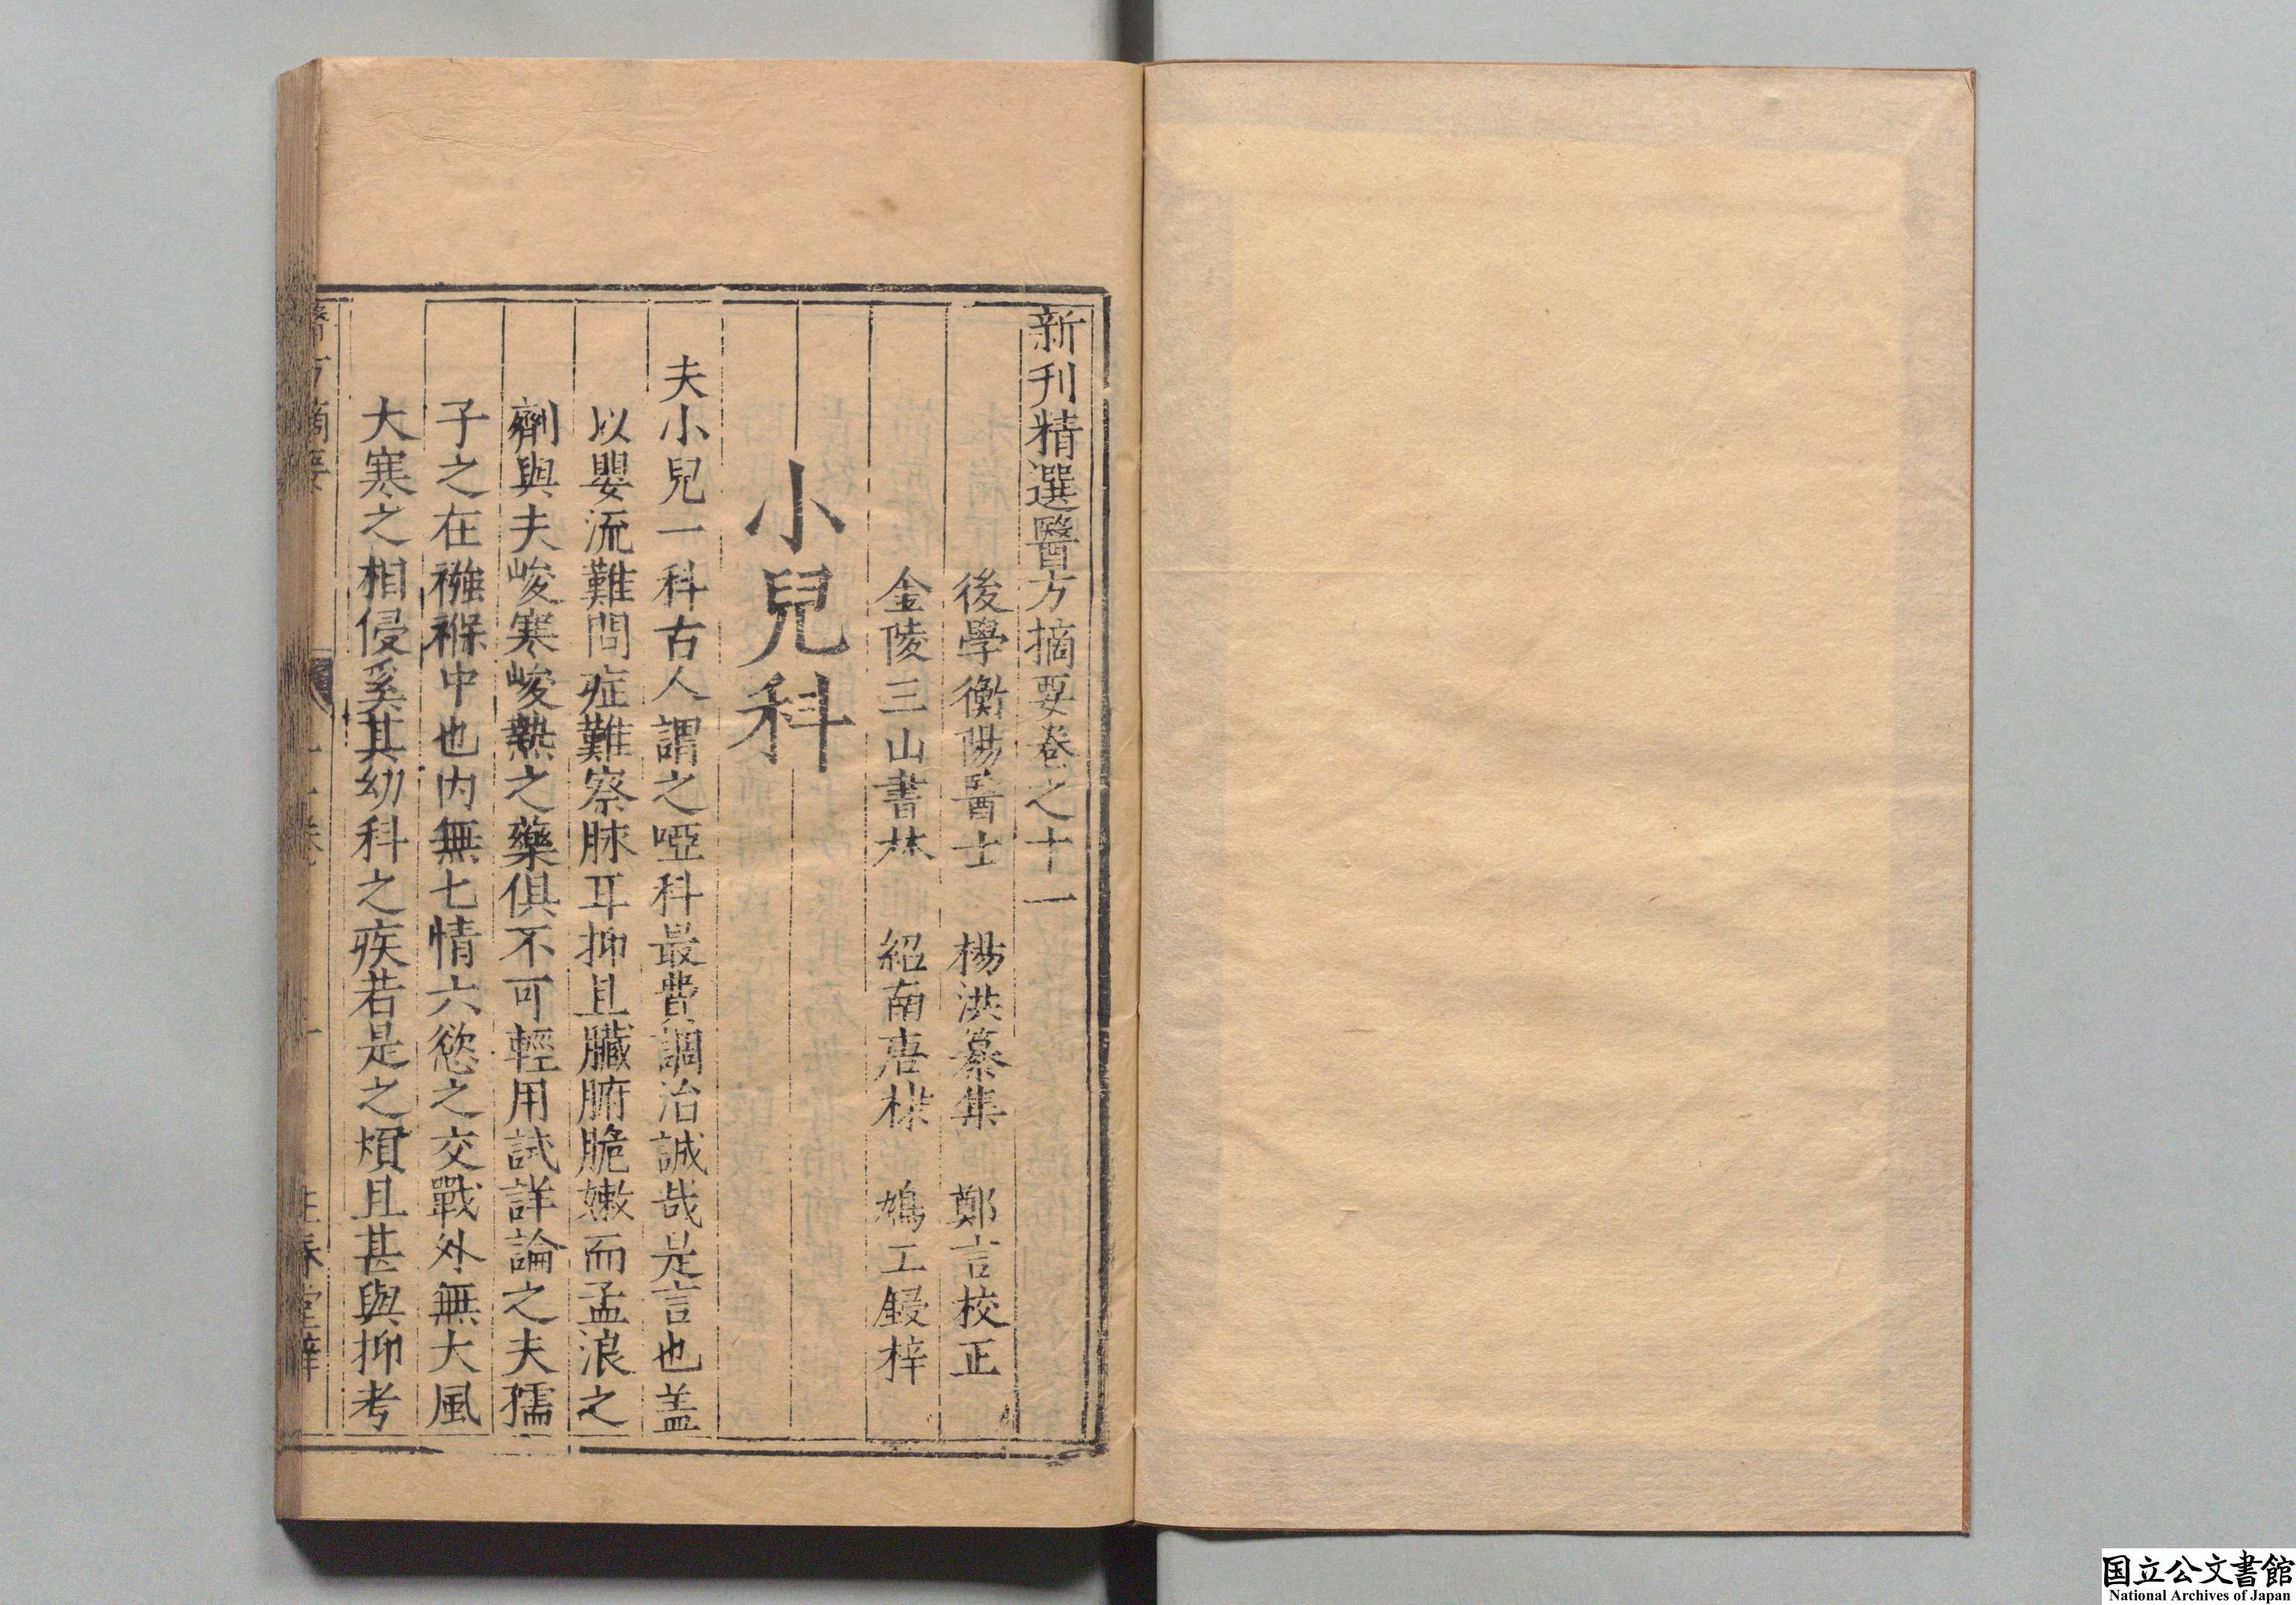 新刊精選醫方摘要卷之十一
後學衡陽醫士 楊洪纂集 鄭言校正
金陵三山書林 紹南唐棶 鳩工鋟梓
小兒科
夫小兒一科古人謂之啞科最費調治誠哉是言也盖
以嬰流難問症難察脉耳抑且臟腑脆嫩而孟浪之
劑與夫峻寒峻熱之藥俱不可輕用試詳論之夫孺
子之在襁褓中也内無七情六慾之交戰外無大風
大寒之相侵奚其幼科之疾若是之煩且甚與抑考
国立公文書館
National Archives of Japan